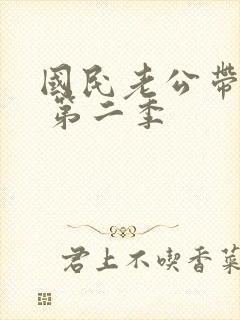 國民老公帶
第二季
君上不喫香菜